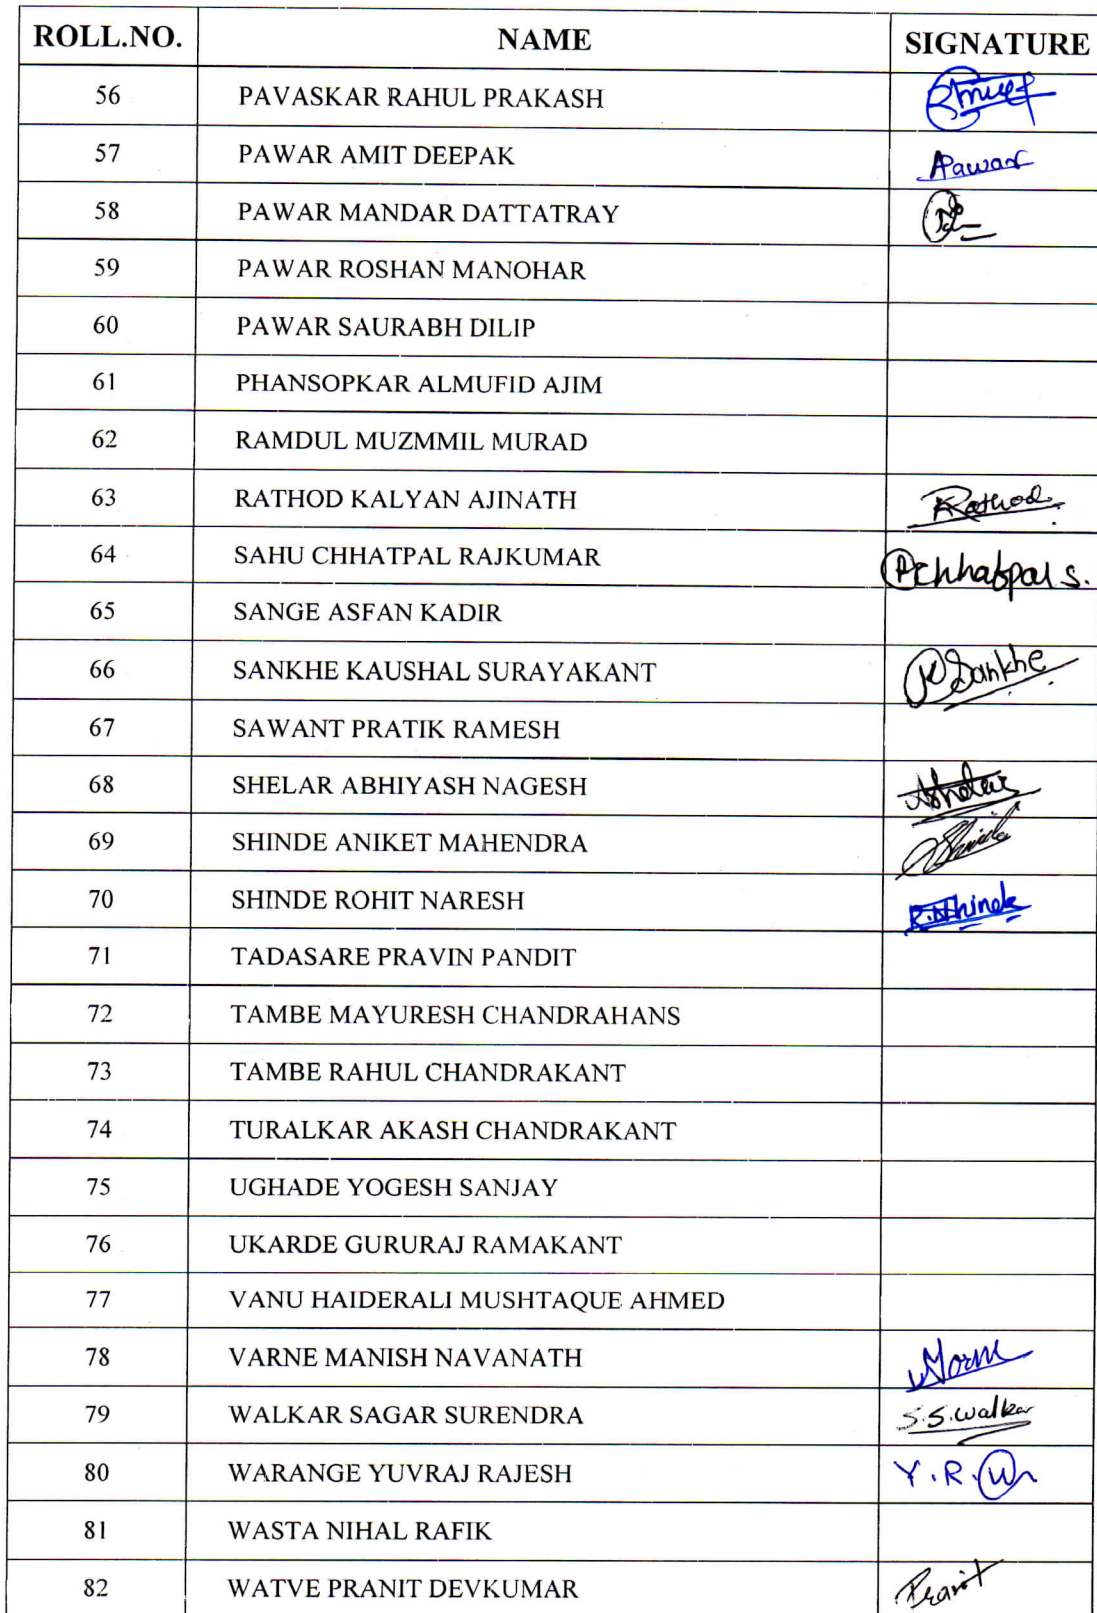 ROLL.NO. NAME SIGNATURE
56 PAVASKAR RAHUL PRAKASH
57 PAWAR AMIT DEEPAK APawar
58 PAWAR MANDAR DATTATRAY
59 PAWAR ROSHAN MANOHAR
60 PAWAR SAURABH DILIP
61 PHANSOPKAR ALMUFID AJIM
62 RAMDUL MUZMMIL MURAD
63 RATHOD KALYAN AJINATH Rathod
64 SAHU CHHATPAL RAJKUMAR Chhatpal S.
65 SANGE ASFAN KADIR
66 SANKHE KAUSHAL SURAYAKANT Sankhe
67 SAWANT PRATIK RAMESH
68 SHELAR ABHIYASH NAGESH AShelar
69 SHINDE ANIKET MAHENDRA AShinde
70 SHINDE ROHIT NARESH R.N.Shinde
71 TADASARE PRAVIN PANDIT
72 TAMBE MAYURESH CHANDRAHANS
73 TAMBE RAHUL CHANDRAKANT
74 TURALKAR AKASH CHANDRAKANT
75 UGHADE YOGESH SANJAY
76 UKARDE GURURAJ RAMAKANT
77 VANU HAIDERALI MUSHTAQUE AHMED
78 VARNE MANISH NAVANATH
79 WALKAR SAGAR SURENDRA S.S.Walkar
80 WARANGE YUVRAJ RAJESH Y.R.W
81 WASTA NIHAL RAFIK
82 WATVE PRANIT DEVKUMAR Pranit